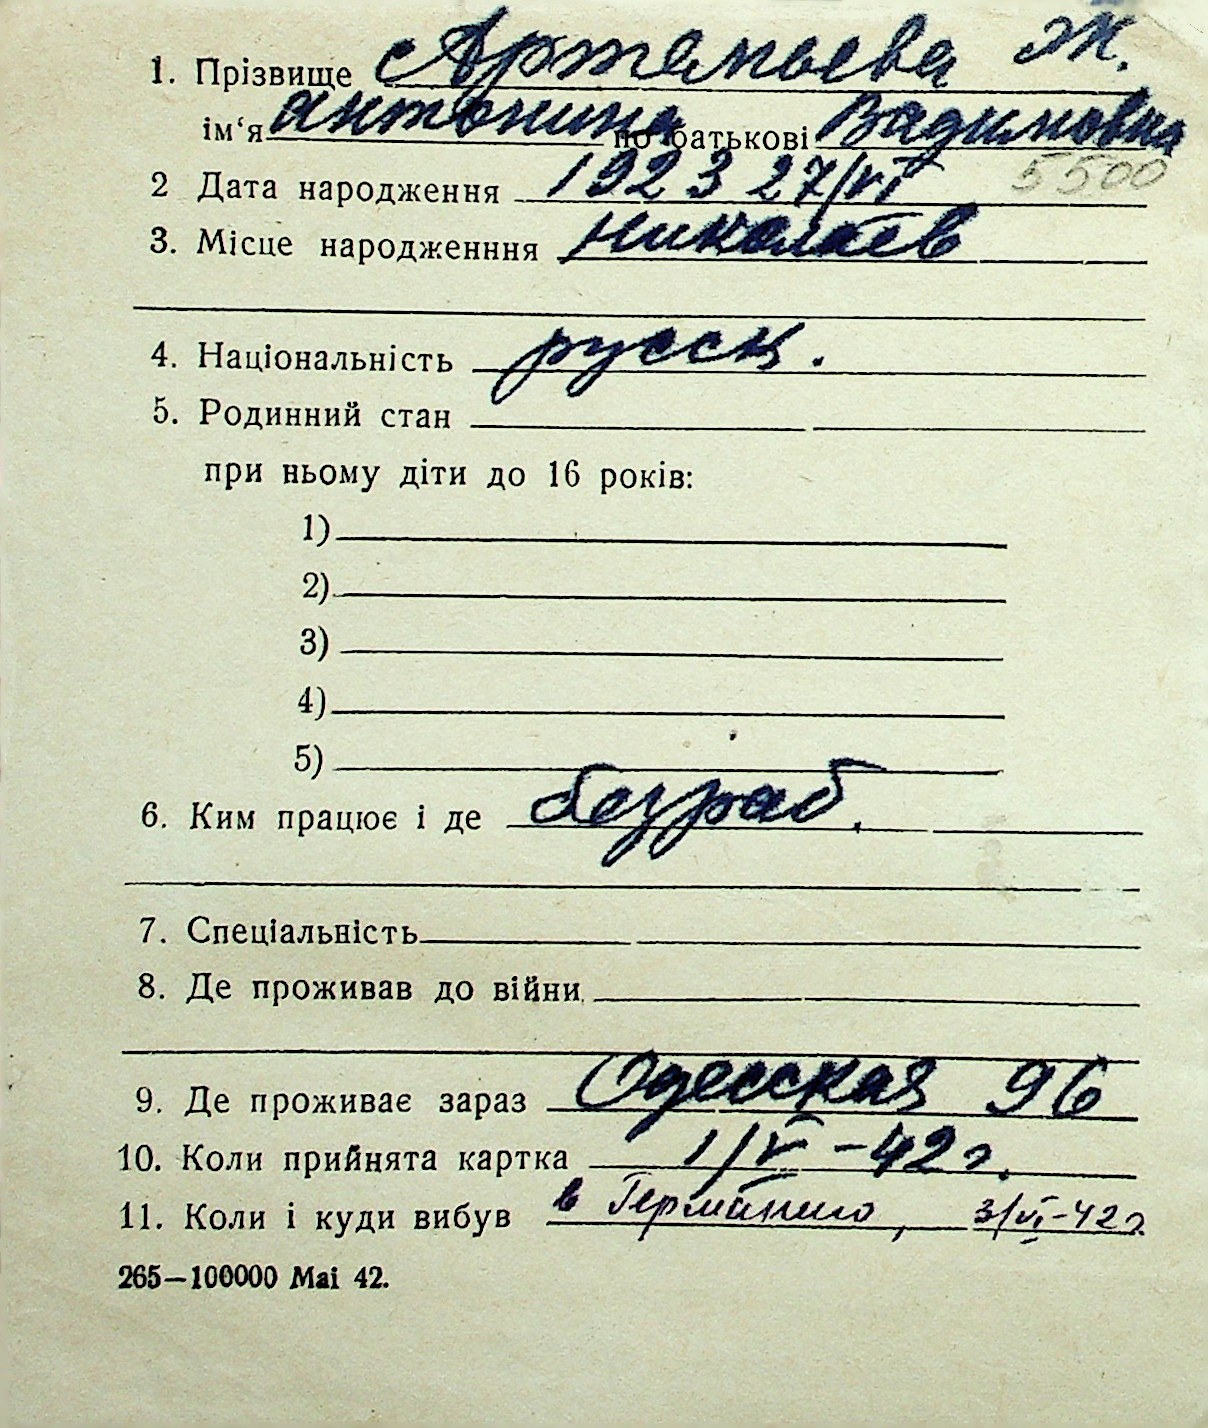 1. Прізвище Артемьева Ж.
ім‘я Антонина по батькові Вадимовна
2 Дата народження 1923 27/VI
5500
3. Місце народженння Николаев
4. Національність русск.
5. Родинний стан
при ньому діти до 16 років:
1)
2)
3)
4)
5)
6. Ким працює і де безраб.
7. Спеціальність
8. Де проживав до війни
9. Де проживає зараз Одесская 96
10. Коли прийнята картка 1/V-42 г.
11. Коли і куди вибув в Германию, 3/VI-42 г
265—100000 Mai 42.